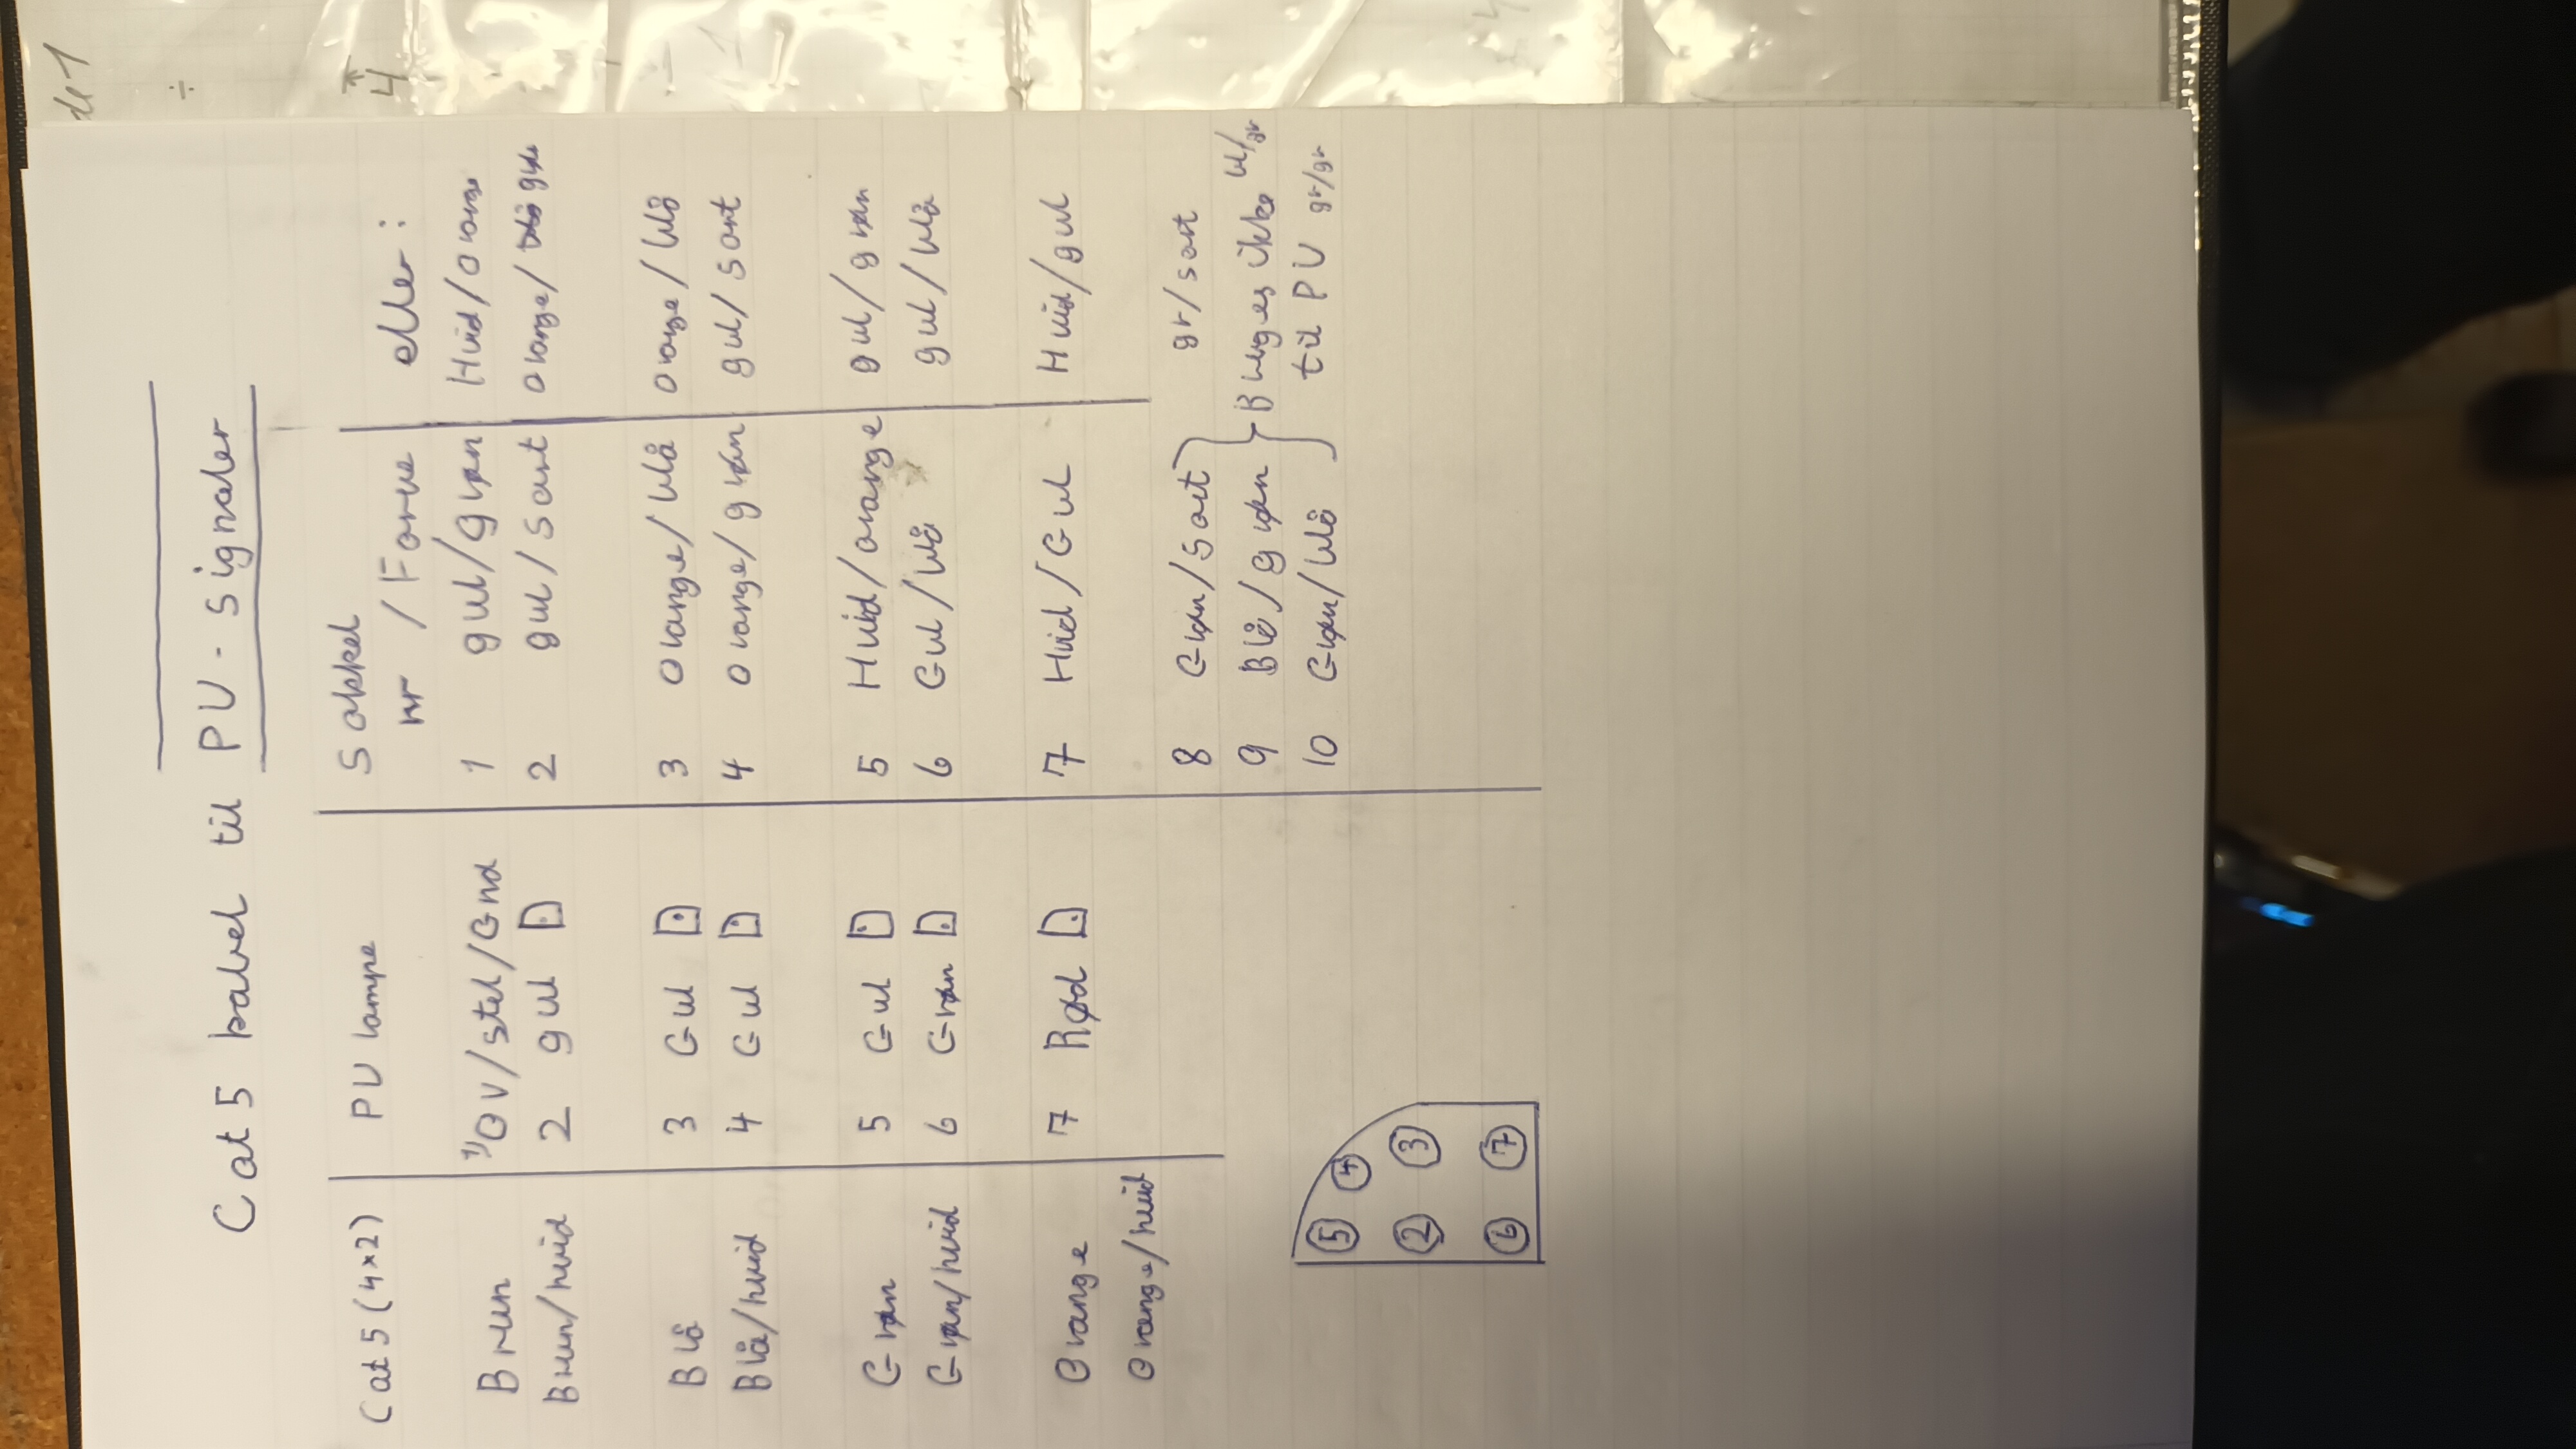 de 1
÷
Cat 5 kabel til PV - Signaler
Cat 5 (4×2) PV lampe Sokkel
nr / Farve eller :
4
Brun 1) 0V/stel/Gnd 1 gul/grøn Hvid/orange
Brun/hvid 2 gul 2 gul/sort orange/
Blå 3 Gul 3 Orange/blå orange/blå
Blå/hvid 4 Gul 4 orange/grøn gul/sort
Grøn 5 Gul 5 Hvid/orange gul/grøn
Grøn/hvid 6 Grøn 6 Gul/blå gul/blå
Orange 7 Rød 7 Hvid/Gul Hvid/gul
Orange/hvid
8 Grøn/Sort gr/sort
9 Blå/grøn Bruges ikke bl/gr
10 Grøn/blå til PV gr/gr
5 4
2 3
6 7